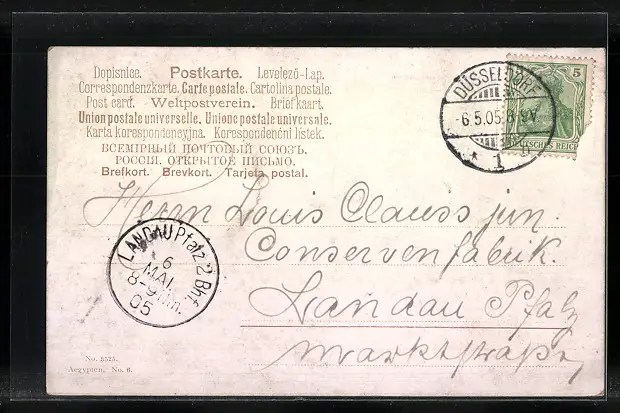 Dopisnice. Postkarte. Levelező-Lap.
Correspondenzkarte. Carte postale. Cartolina postale.
Post card. Weltpostverein. Briefkaart.
Union postale universelle. Unione postale universale.
Karta korespondencyjna. Korespondenční lístek.
ВСЕМІРНЫЙ ПОЧТОВЫЙ СОЮЗЪ.
РОССІЯ. ОТКРЫТОЕ ПИСЬМО.
Brefkort. Brevkort. Tarjeta postal.
DÜSSELDORF
6.5.05. 8-9V.
* 1 n
5
DEUTSCHES REICH
Herrn Louis Clauss jun.
Conservenfabrik.
Landau Pfalz
Marktstraße,
LANDAU Pfalz 2 Bhf.
6
MAI.
8-9 Nm.
05
No. 3525.
Aegypten. No. 6.